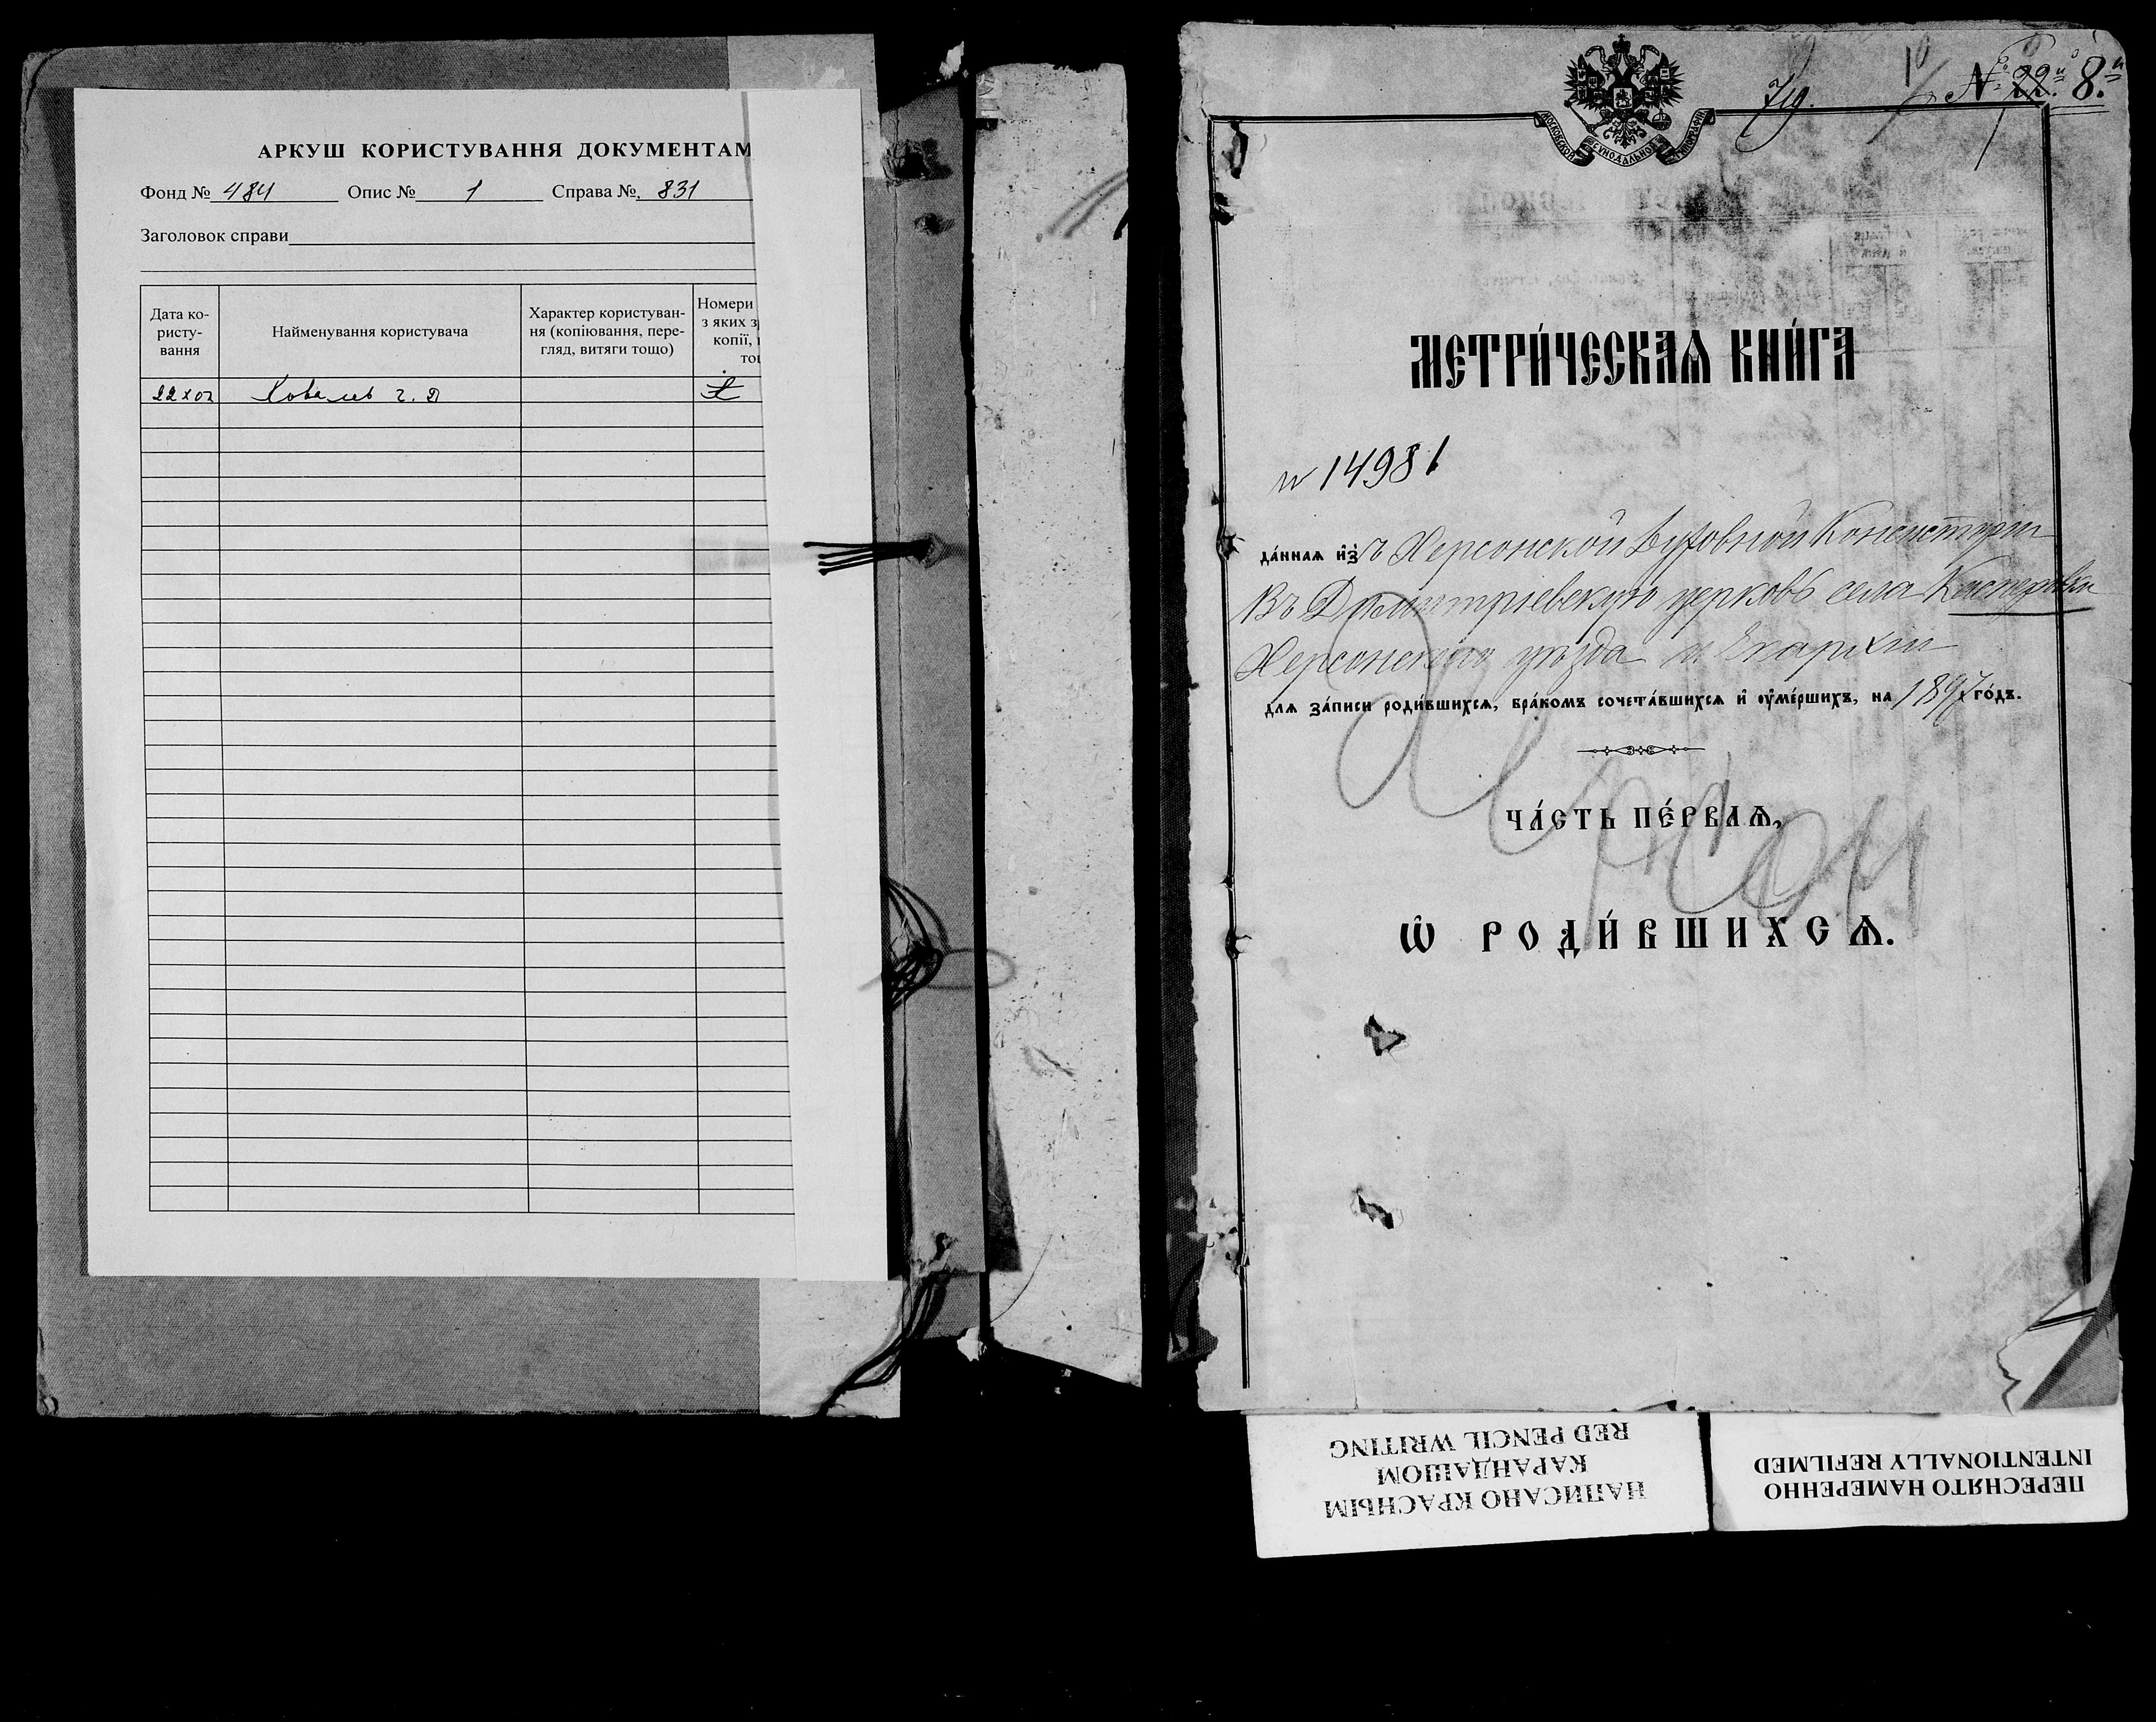 АРКУШ КОРИСТУВАННЯ ДОКУМЕНТАМ
Фонд № 484 Опис № 1 Справа № 831
Заголовок справи
Дата ко-
ристу-
вання
Найменування користувача
Характер користуван-
ня (копіювання, пере-
гляд, витяги тощо)
Номери
з яких з
копії,
то
№ 22. 8.
МОСКОВСКОЙ СѴНОДАЛЬНОЙ ТИПОГРАФІИ
МЕТРИ́ЧЕСКАѦ КНИ́ГА
№ 14981
да́ннаѧ и҆зъ Херсонской Духовной Консисторіи
Въ Димитріевскую церковь села Касперовки
Херсонскаго уѣзда и Епархіи
длѧ за́писи роди́вшихсѧ, бра́комъ сочета́вшихсѧ и҆ ᲂу҆ме́ршихъ, на 1897 го́дъ.
ЧА́СТЬ ПЕ́РВАѦ,
Ѡ҆ РОДИ́ВШИХСѦ.
НАПИСАНО КРАСНЫМ
КАРАНДАШОМ
RED PENCIL WRITING
ПЕРЕСНЯТО НАМЕРЕННО
INTENTIONALLY REFILMED